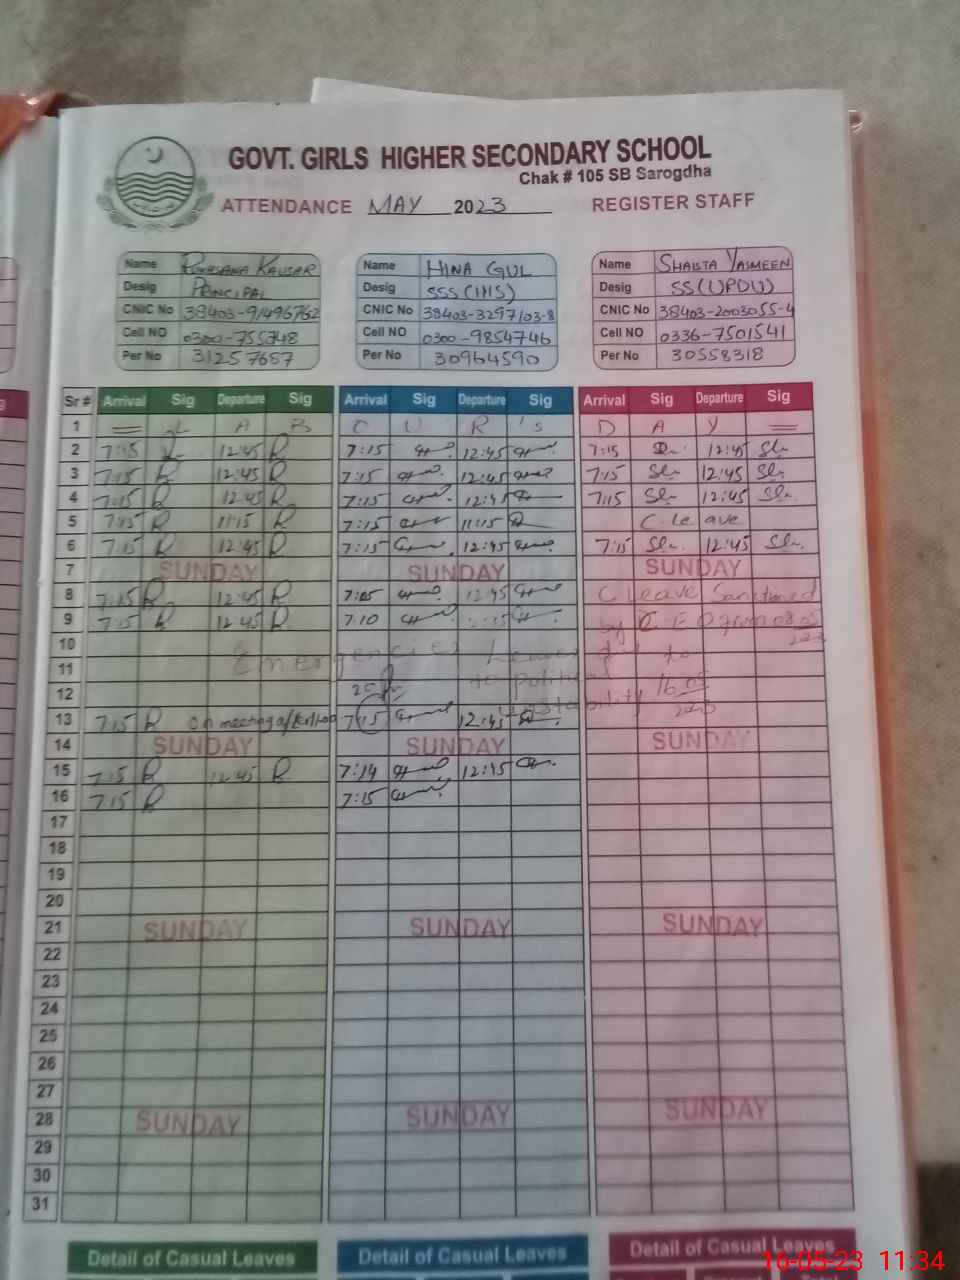 GOVT. GIRLS HIGHER SECONDARY SCHOOL
Chak # 105 SB Sarogdha
ATTENDANCE MAY 2023 REGISTER STAFF
Name Rukhsana Kausar Name HINA GUL Name SHAISTA YASMEEN
Desig PRINCIPAL Desig SSS (IHS) Desig SS (UPDU)
CNIC No 38403-91496762 CNIC No 38403-3297103-8 CNIC No 38403-2003055-4
Cell NO 0300-755348 Cell NO 0300-9854746 Cell NO 0336-7501541
Per No 31257687 Per No 30964590 Per No 30558318
Sr # Arrival Sig Departure Sig Arrival Sig Departure Sig Arrival Sig Departure Sig
1 L A B O U R 's D A Y
2 7:15 12:45 7:15 12:45 7:15 12:45
3 7:15 12:45 7:15 12:45 7:15 12:45
4 7:15 12:45 7:15 12:45 7:15 12:45
5 7:15 11:15 7:15 11:15 C. Leave
6 7:15 12:45 7:15 12:45 7:15 12:45
7 SUNDAY SUNDAY SUNDAY
8 7:15 12:45 7:15 12:45 C Leave Sanctioned
9 7:15 12:45 7:10 by C E O from 08.05
10 Emergencies Leaves due to
11 to political
12 unstability 16.05
13 7:15 on meeting 7:15 12:45
14 SUNDAY SUNDAY SUNDAY
15 7:15 12:45 7:14 12:45
16 7:15 7:15
17
18
19
20
21 SUNDAY SUNDAY SUNDAY
22
23
24
25
26
27
28 SUNDAY SUNDAY SUNDAY
29
30
31
Detail of Casual Leaves Detail of Casual Leaves Detail of Casual Leaves
16-05-23 11:34